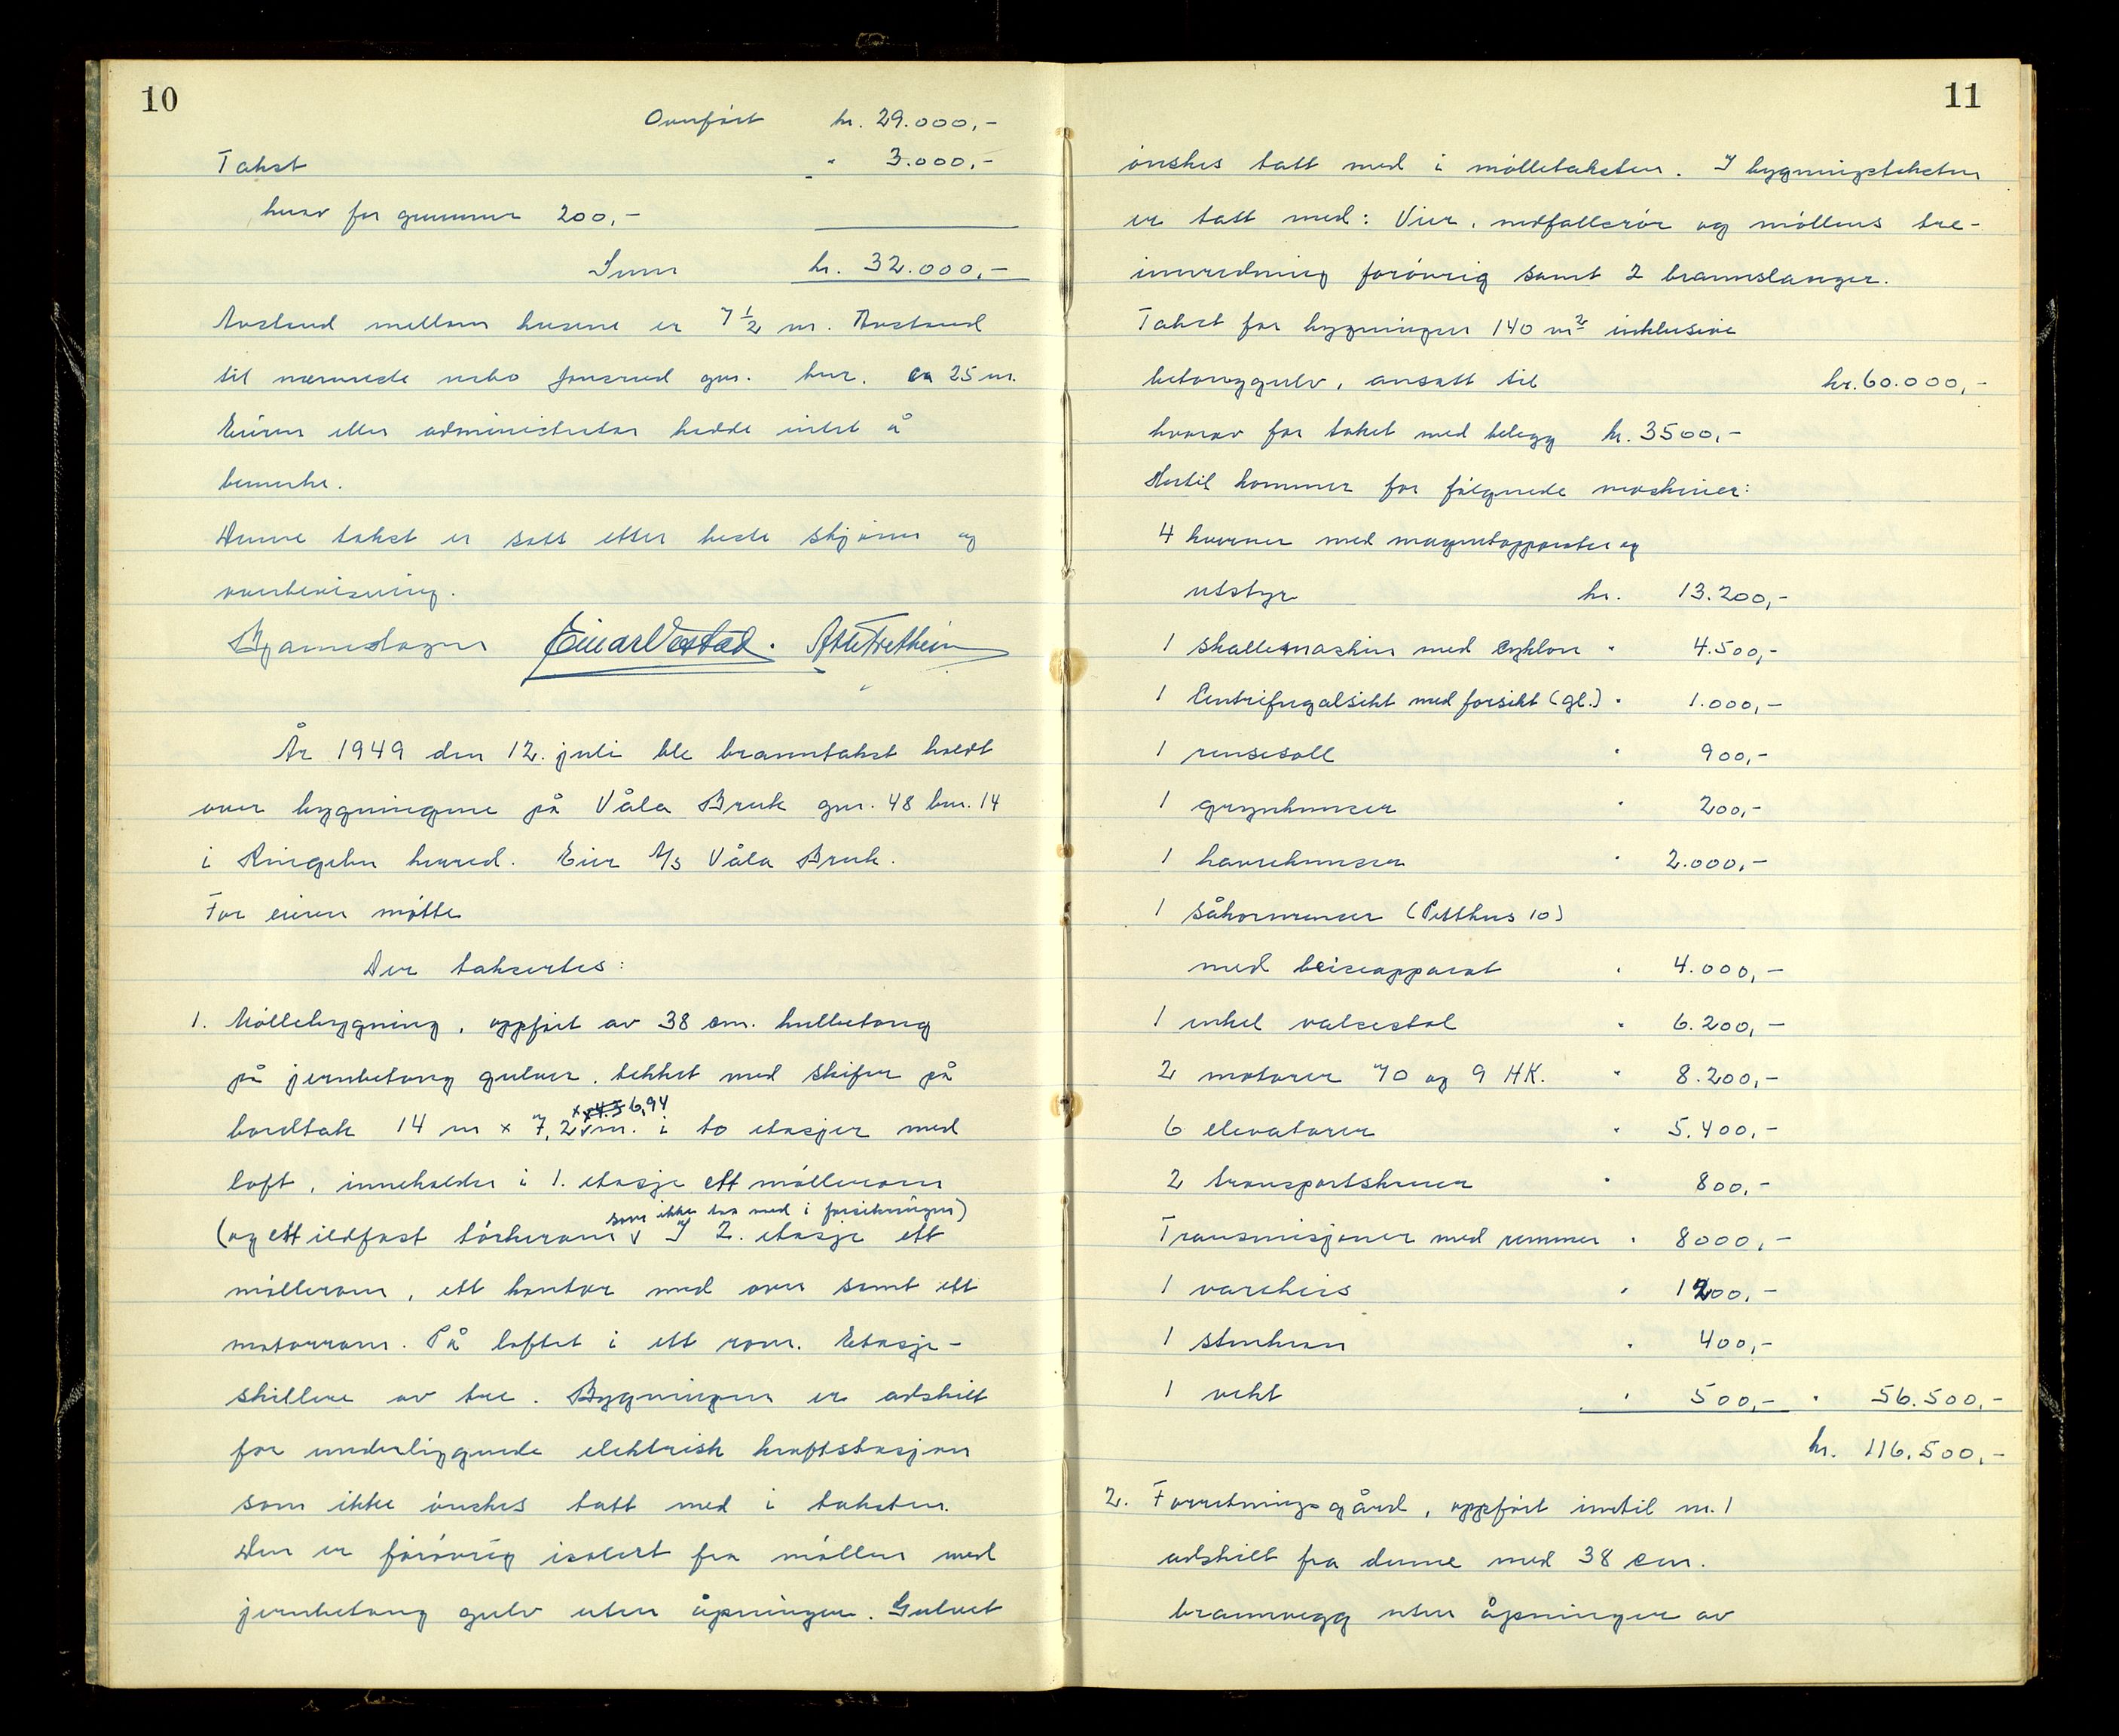 10
Overført kr. 29.000,-
Takst " 3.000,-
herav for grunnmur 200,-
Sum kr. 32.000,-
Avstand mellom husene er 7 1/2 m. Avstand
til nærmeste nabo gnr. bnr. ca 25 m.
Eieren eller administrator hadde intet å
bemerke.
Denne takst er satt etter beste skjønn og
overbevisning.
Einar Vestad.
År 1949 den 12. juli ble branntakst holdt
over bygningene på Våla Bruk gnr. 48 bnr. 14
i Ringebu herred. Eier A/S Våla Bruk.
For eieren møtte
Der taksertes:
1. Møllebygning, oppført av 38 cm. hulbetong
på jernbetong gulver. tekket med skifer på
x 6,94
bordtak 14 m x 7,2 m. i to etasjer med
loft, inneholder i 1. etasje ett møllerom
som ikke tas med i forsikringen)
(og ett ildfast tørkerom I 2. etasje ett
møllerom, ett kontor med ovn samt ett
motorrom. På loftet i ett rom. Etasje-
skillene av tre. Bygningen er adskilt
for underliggende elektrisk kraftstasjon
som ikke ønskes tatt med i taksten.
Den er førøvrig isolert fra møllen med
jernbetong gulv uten åpninger. Gulvet
11
ønskes tatt med i mølletaksten. I bygningstaksten
er tatt med: Vier, nedfallsrør og møllens tre-
innredning forøvrig samt 2 brannslanger.
Takst for bygningen 140 m² inklusive
betonggulv, ansatt til kr. 60.000,-
hvorav for taket med belegg kr. 3500,-
Hertil kommer for følgende maskiner:
4 kverner med magnetapparater og
utstyr kr. 13.200,-
1 skallemaskin med cyklon " 4.500,-
1 Centrifugalsikt med forsikt (gl.) " 1.000,-
1 rensesoll " 900,-
1 grynrenser " 200,-
1 havrerenser " 2.000,-
1 såkornrenser (Petkus 10)
med beiseapparat " 4.000,-
1 enkel valsestol " 6.200,-
2 motorer 70 og 9 HK. " 8.200,-
6 elevatorer " 5.400,-
2 transportskruer " 800,-
Transmisjoner med remmer " 8000,-
1 vareheis " 1200,-
1 stenkran " 400,-
1 vekt " 500,- " 56.500,-
kr. 116.500,-
2. Forretningsgård, oppført inntil nr. 1
adskilt fra denne med 38 cm.
brannvegg uten åpninger av